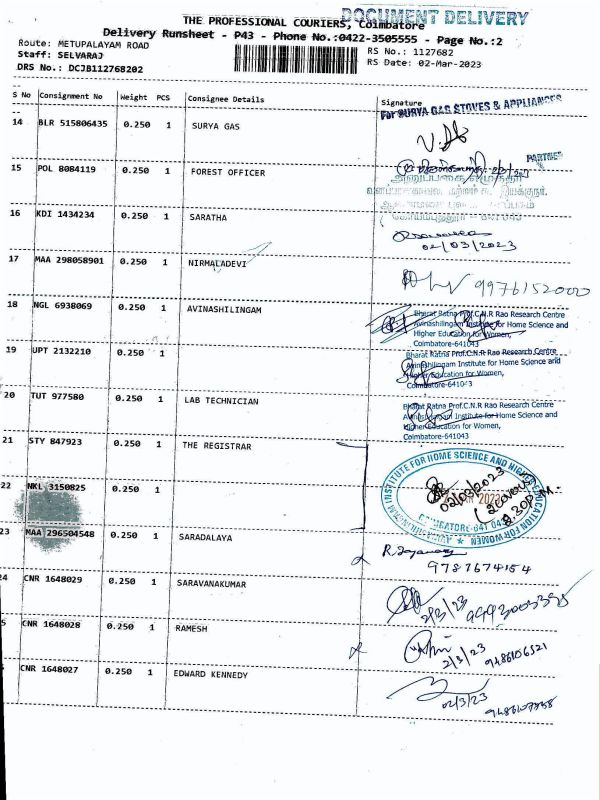 DOCUMENT DELIVERY
THE PROFESSIONAL COURIERS, Coimbatore
Delivery Runsheet - P43 - Phone No.:0422-3505555 - Page No.:2
Route: METUPALAYAM ROAD
RS No.: 1127682
Staff: SELVARAJ
RS Date: 02-Mar-2023
DRS No.: DCJB112768202
S No Consignment No Weight PCS Consignee Details Signature
For SURYA GAS STOVES & APPLIANCES
14 BLR 515806435 0.250 1 SURYA GAS
PARTNER
15 POL 8084119 0.250 1 FOREST OFFICER
16 KDI 1434234 0.250 1 SARATHA
02/03/2023
17 MAA 298058901 0.250 1 NIRMALADEVI
9976152000
18 NGL 6938069 0.250 1 AVINASHILINGAM
Bharat Ratna Prof.C.N.R Rao Research Centre
Avinashilingam Institute for Home Science and
Higher Education for Women,
Coimbatore-641043
19 UPT 2132210 0.250 1
Bharat Ratna Prof.C.N.R Rao Research Centre
Avinashilingam Institute for Home Science and
Higher Education for Women,
Coimbatore-641043
20 TUT 977580 0.250 1 LAB TECHNICIAN
Bharat Ratna Prof.C.N.R Rao Research Centre
Avinashilingam Institute for Home Science and
Higher Education for Women,
Coimbatore-641043
21 STY 847923 0.250 1 THE REGISTRAR
AVINASHILINGAM INSTITUTE FOR HOME SCIENCE AND HIGHER EDUCATION FOR WOMEN
COIMBATORE-641 043
02/03/2023
22 NKL 3150825 0.250 1
23 MAA 296504548 0.250 1 SARADALAYA
9787674154
24 CNR 1648029 0.250 1 SARAVANAKUMAR
2/3/23
5 CNR 1648028 0.250 1 RAMESH
2/3/23
9486106521
CNR 1648027 0.250 1 EDWARD KENNEDY
02/3/23